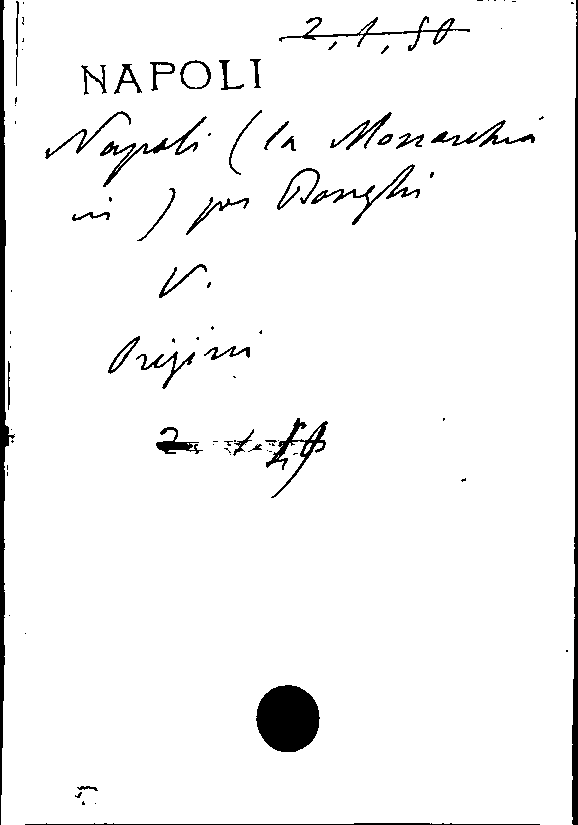 2, 1, 50
NAPOLI
Napoli (la Monarchia
in) per Bonghi
V.
Origini
2